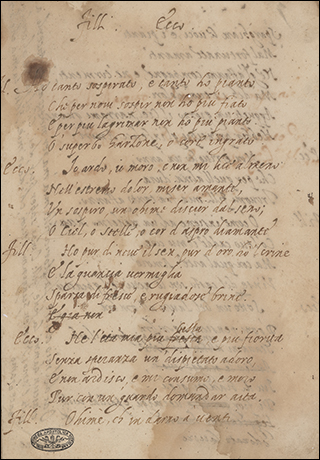 Fill. Ecco
I. Ho tanto sospirato, e tanto ho pianto
Che per novi sospir non ho più fiato
E per più lagrimar non ho più pianto
O superbo Garzone, o core ingrato
Ecco. Io ardo, io moro, e non mi lice almeno
Nell'estremo dolor miser amante,
Un sospiro, un ohime d'alsens;
O Cieli, o Stelle, o cor d'aspro diamante
Fill. Ho pur di neve il sen, pur d'oro ho'l crine
E la guancia vermiglia
Sparsa di fresche, e rugiadose brine
E già non
Ecco. Ne l'età mia più fresca bella e più fiorita
Senza speranza un dispietato adoro,
E non ardisco, e mi consumo, e moro
Pur con un guardo domandar aita.
Fill. Ohime, ch'indarno a venti